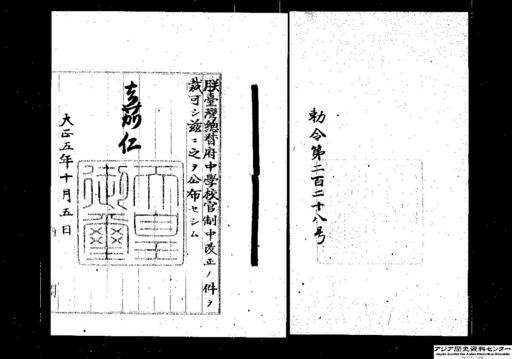 勅令第二百二十八号
朕臺灣總督府中學校官制中改正ノ件ヲ
裁可シ茲ニ之ヲ公布セシム
嘉仁
天皇
御璽
大正五年十月五日
アジア歴史資料センター
Japan Center for Asian Historical Records